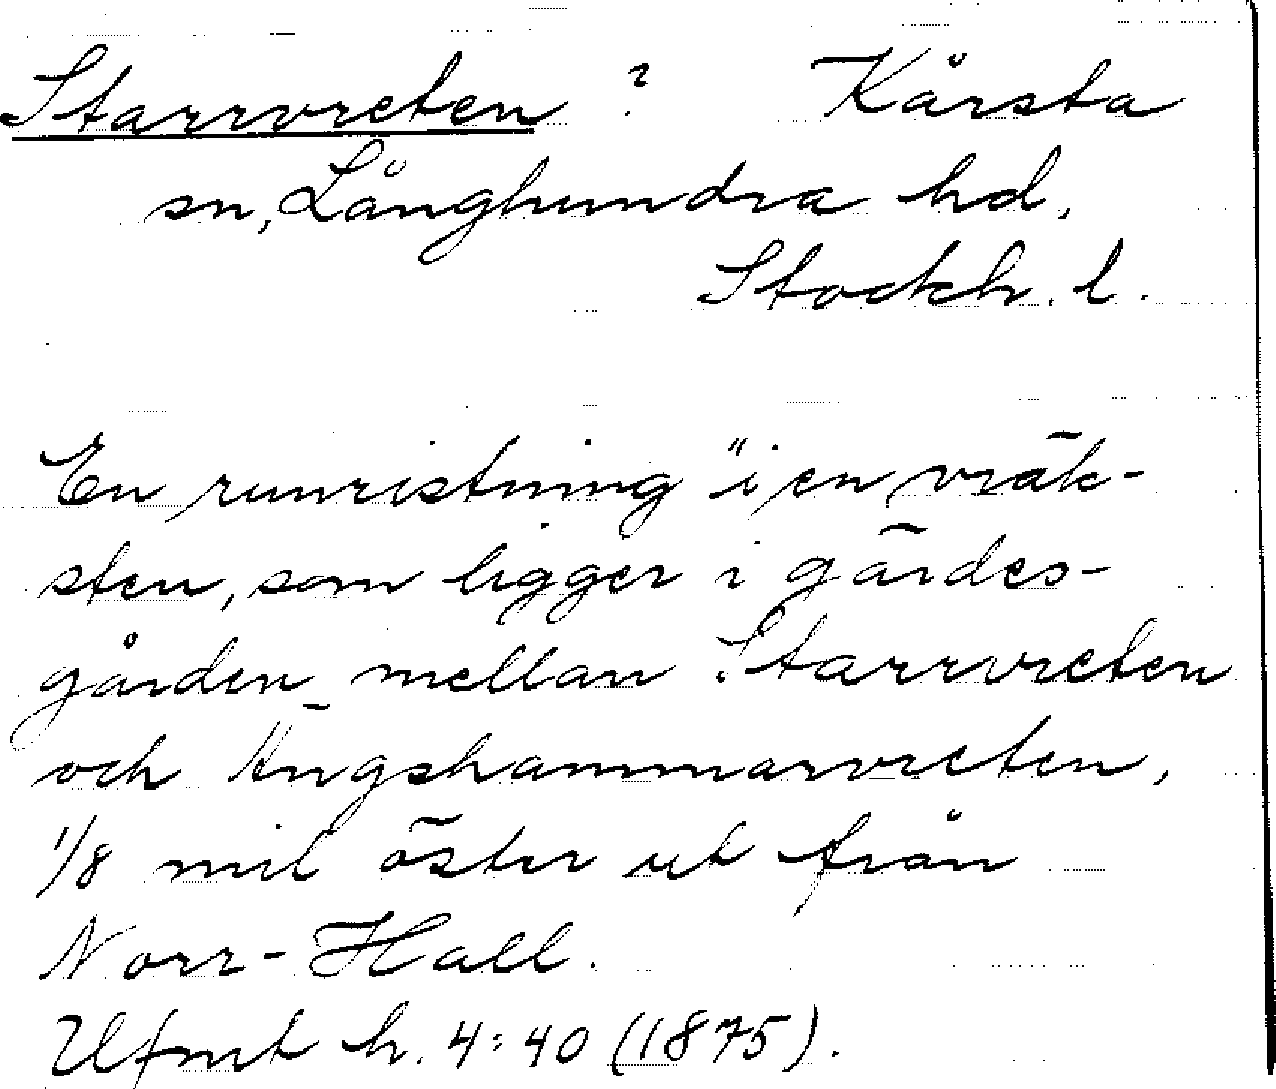 Starrvreten ? Kårsta
sn, Långhundra hd,
Stockh. l.
En runristning "i en vräk-
sten, som ligger i gärdes-
gården mellan Starrvreten
och Ängshammarvreten,
1/8 mil öster ut från
Norr-Hall.
Ufmt h. 4:40 (1875).